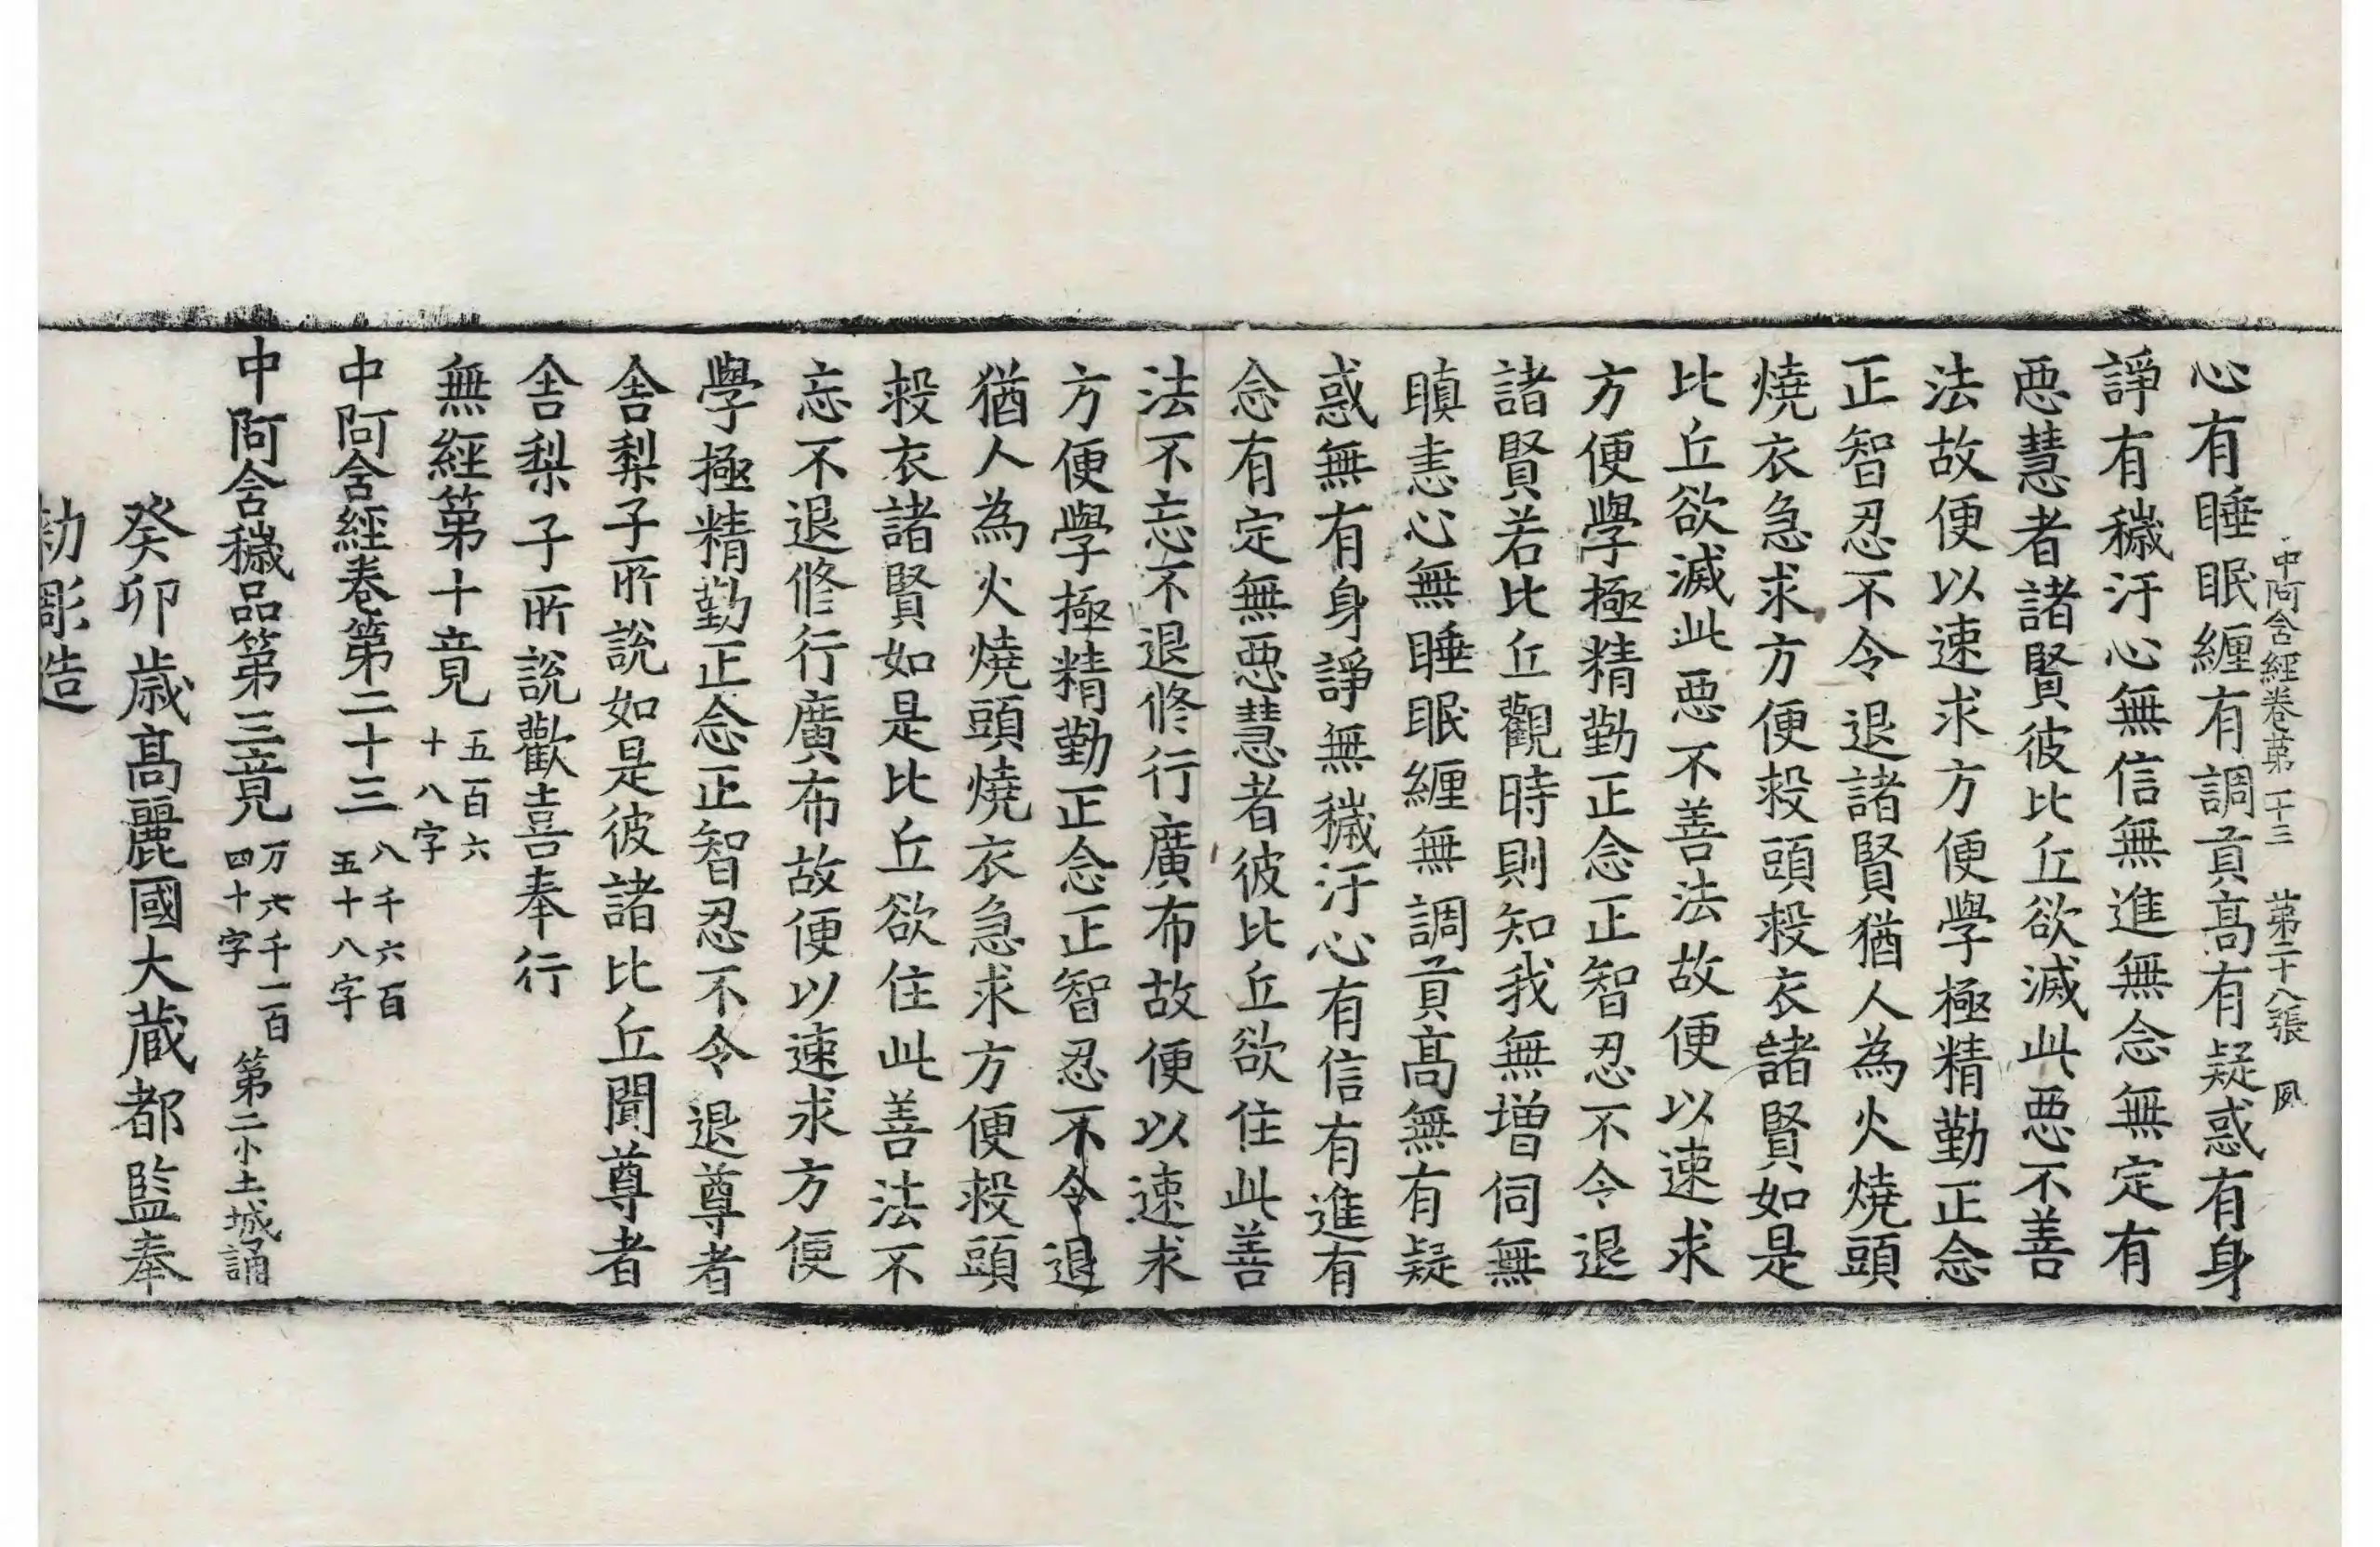 中阿含經卷第二十三 第二十八張 夙
心有睡眠纏有調貢高有疑惑有身
諍有穢汙心無信無進無念無定有
惡慧者諸賢彼比丘欲滅此惡不善
法故便以速求方便學極精勤正念
正智忍不令退諸賢猶人為火燒頭
燒衣急求方便救頭救衣諸賢如是
比丘欲滅此惡不善法故便以速求
方便學極精勤正念正智忍不令退
諸賢若比丘觀時則知我無增伺無
瞋恚心無睡眠纏無調貢高無有疑
惑無有身諍無穢汙心有信有進有
念有定無惡慧者彼比丘欲住此善
法不忘不退修行廣布故便以速求
方便學極精勤正念正智忍不令退
猶人為火燒頭燒衣急求方便救頭
救衣諸賢如是比丘欲住此善法不
忘不退修行廣布故便以速求方便
學極精勤正念正智忍不令退尊者
舍梨子所說如是彼諸比丘聞尊者
舍梨子所說歡喜奉行
無經第十竟 五百六十八字
中阿含經卷第二十三 八千六百五十八字
中阿含穢品第三竟 万六千一百四十字 第二小土城誦
癸卯歲高麗國大藏都監奉
勑彫造